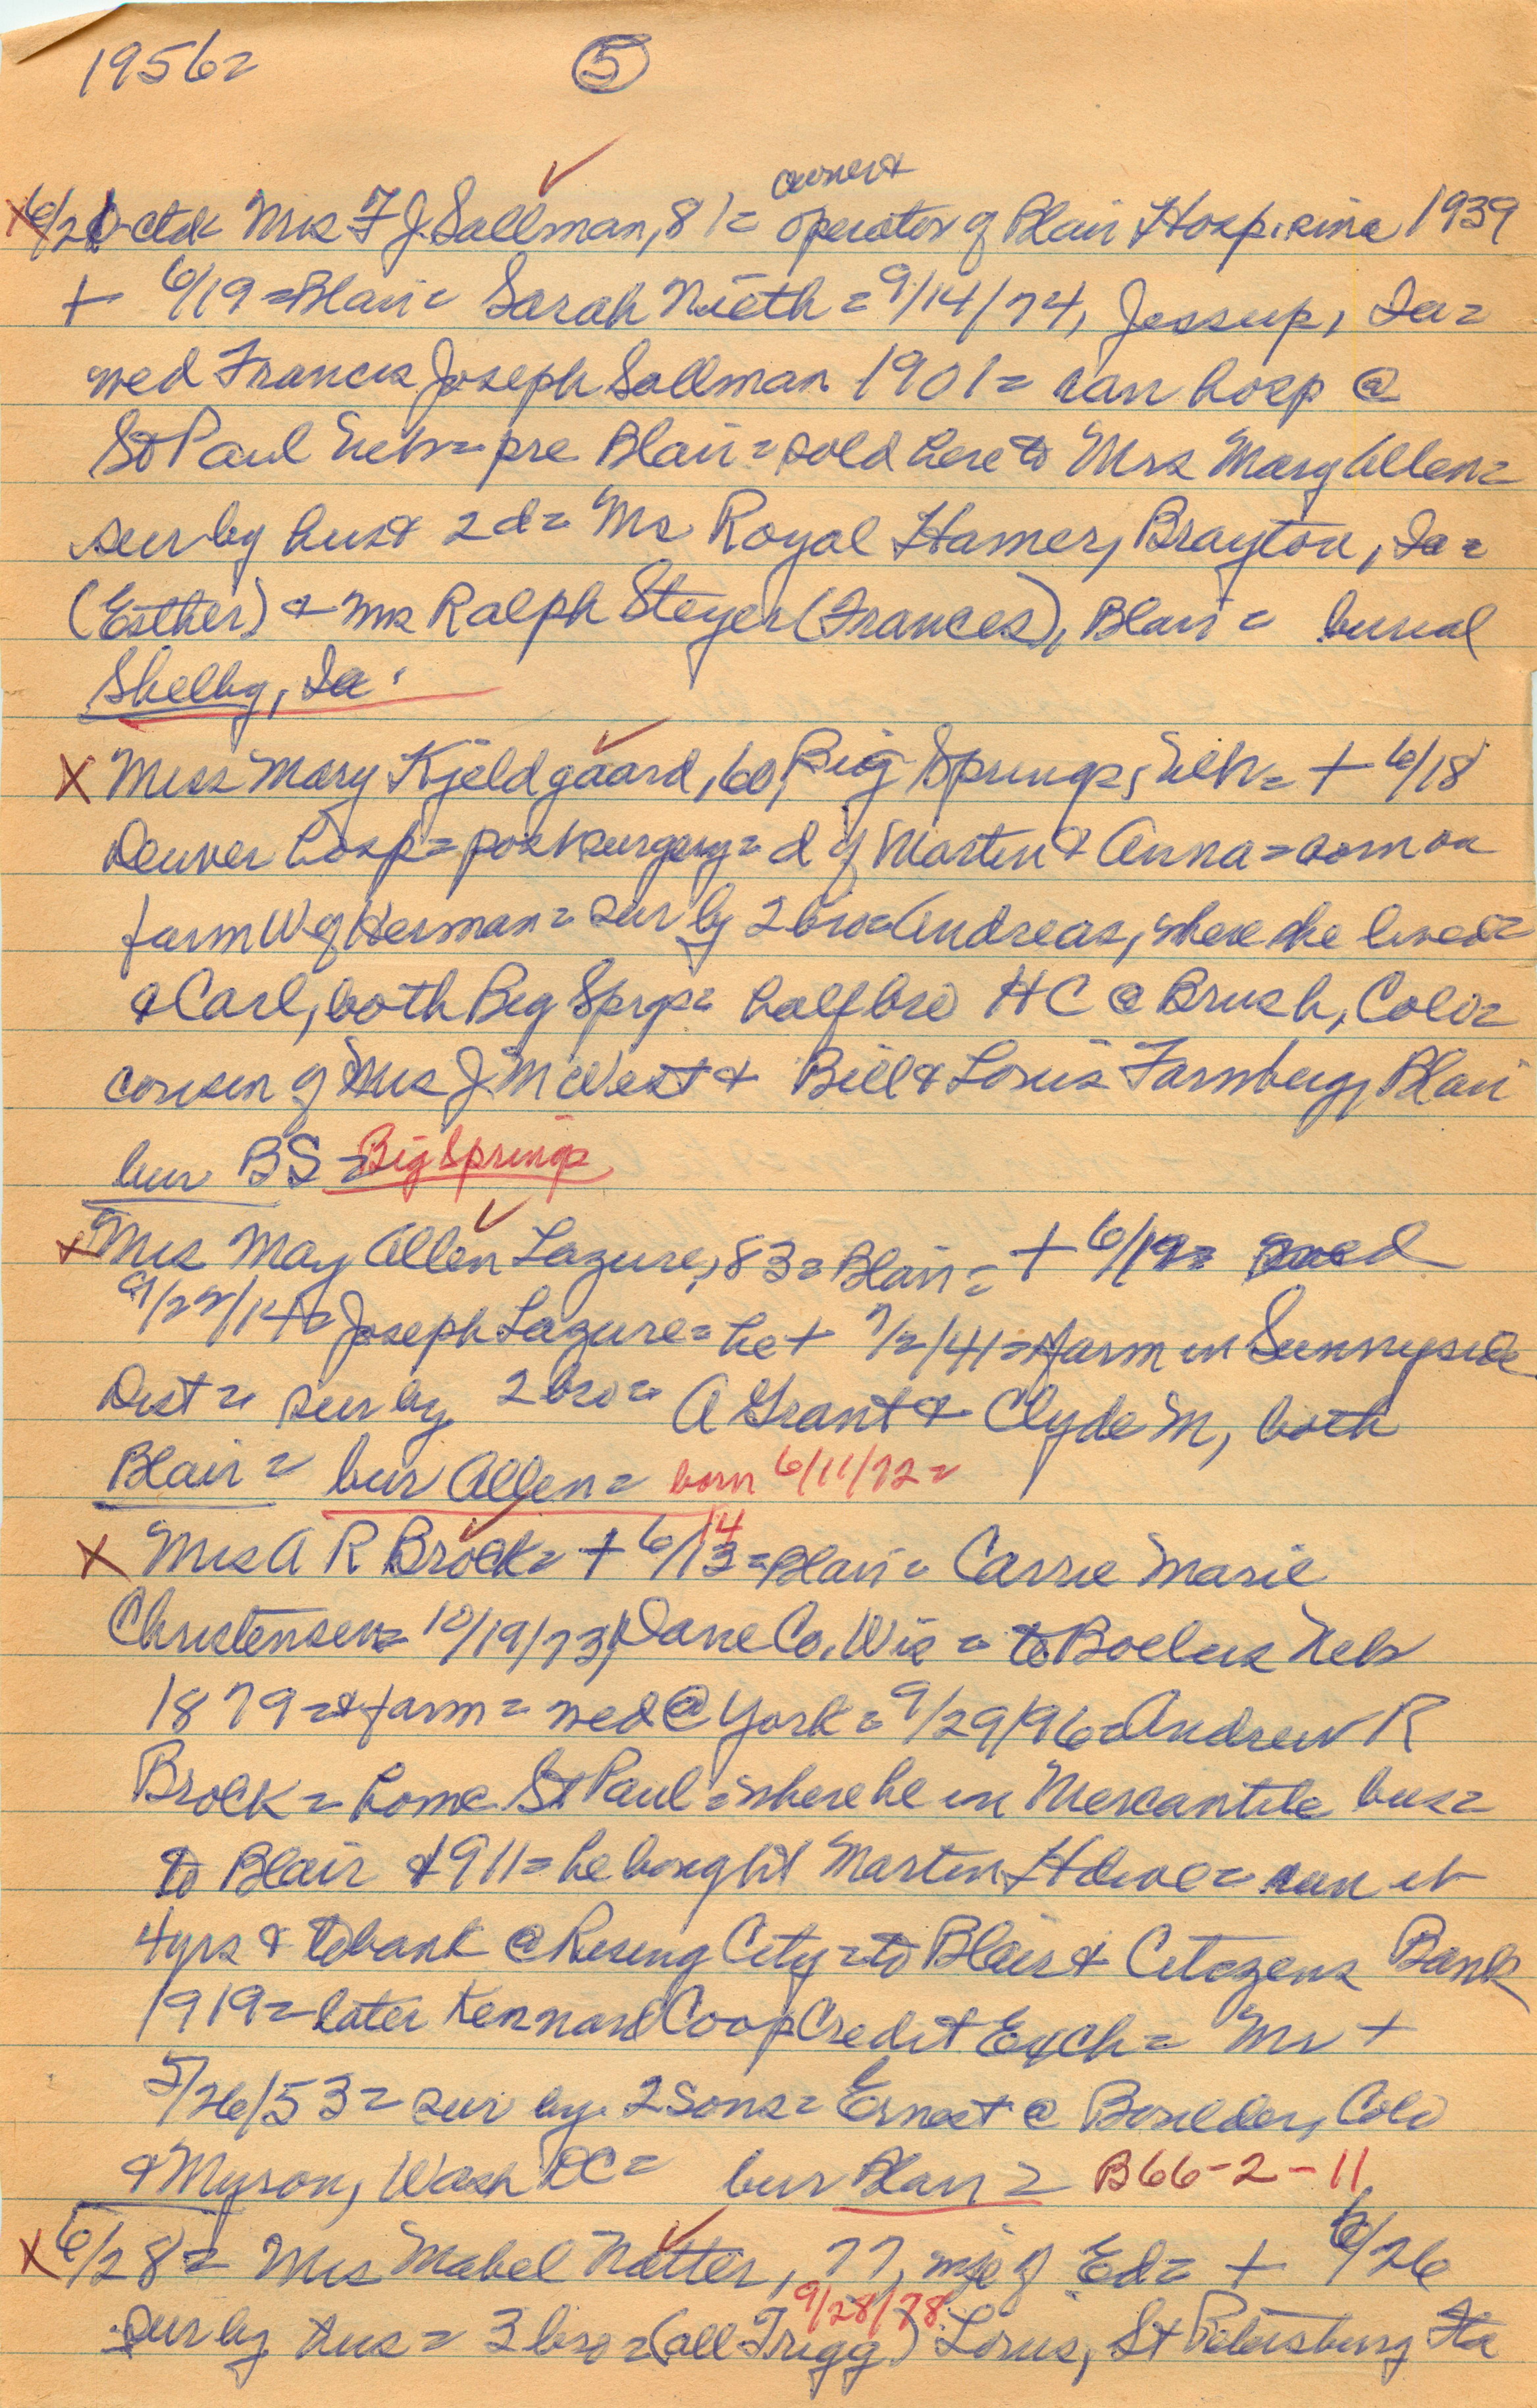 1956=
5
owner &
x 6/21-ctd= Mrs F J. Sallman, 81= operator of Blair Hosp. since 1939
+ 6/19=Blair= Sarah Nieth=9/14/74, Jessup, Ia=
wed Francis Joseph Sallman 1901= ran hosp @
St Paul Neb= pre Blair= sold here to Mrs Mary Allen=
sur by hus & 2 d= Mrs Royal Hamer, Brayton, Ia=
(Esther) & Mrs Ralph Steyer (Frances), Blair = burial
Shelby, Ia.
X Miss Mary Kjeldgaard, 60, Big Springs, Neb= + 6/18
Denver hosp= post surgery= d of Martin & Anna= born on
farm W of Herman= sur by 2 bro= Andreas, where she lived=
& Carl, both Big Sprgs= half bro HC @ Brush, Colo=
cousin of Mrs J M West & Bill & Louis Farnberg, Blair
bur BS = Big Springs
x Mrs May Allen Lazure, 83= Blair= + 6/19= wed
9/22/14= Joseph Lazure= he + 7/2/41= farm in Sunnyside
Dist= sur by 2 bro= A Grant & Clyde M, both
Blair= bur Allen= born 6/11/72=
14
X Mrs A R Brock= + 6/13= Blair= Carrie Marie
Christensen= 10/19/73, Dane Co. Wis = to Boelus Neb
1879=& farm= wed @ York= 9/29/96= Andrew R
Brock= home St Paul= where he in Mercantile bus=
to Blair 1911= he bought Martin Hdwe= ran it
4 yrs & to bank @ Rising City= to Blair & Citizens Bank
1919= later Kennard Coop Credit Exch= Mr +
5/26/53= sur by 2 sons= Ernest @ Boulder, Colo
& Myron, Wash DC= bur Blair= B66-2-11
X 6/28= Mrs Mabel Natter, 77, wife of Ed= + 6/26
9/28/78
sur by hus= 3 bro= (all Trigg) Louis, St Petersburg Fla